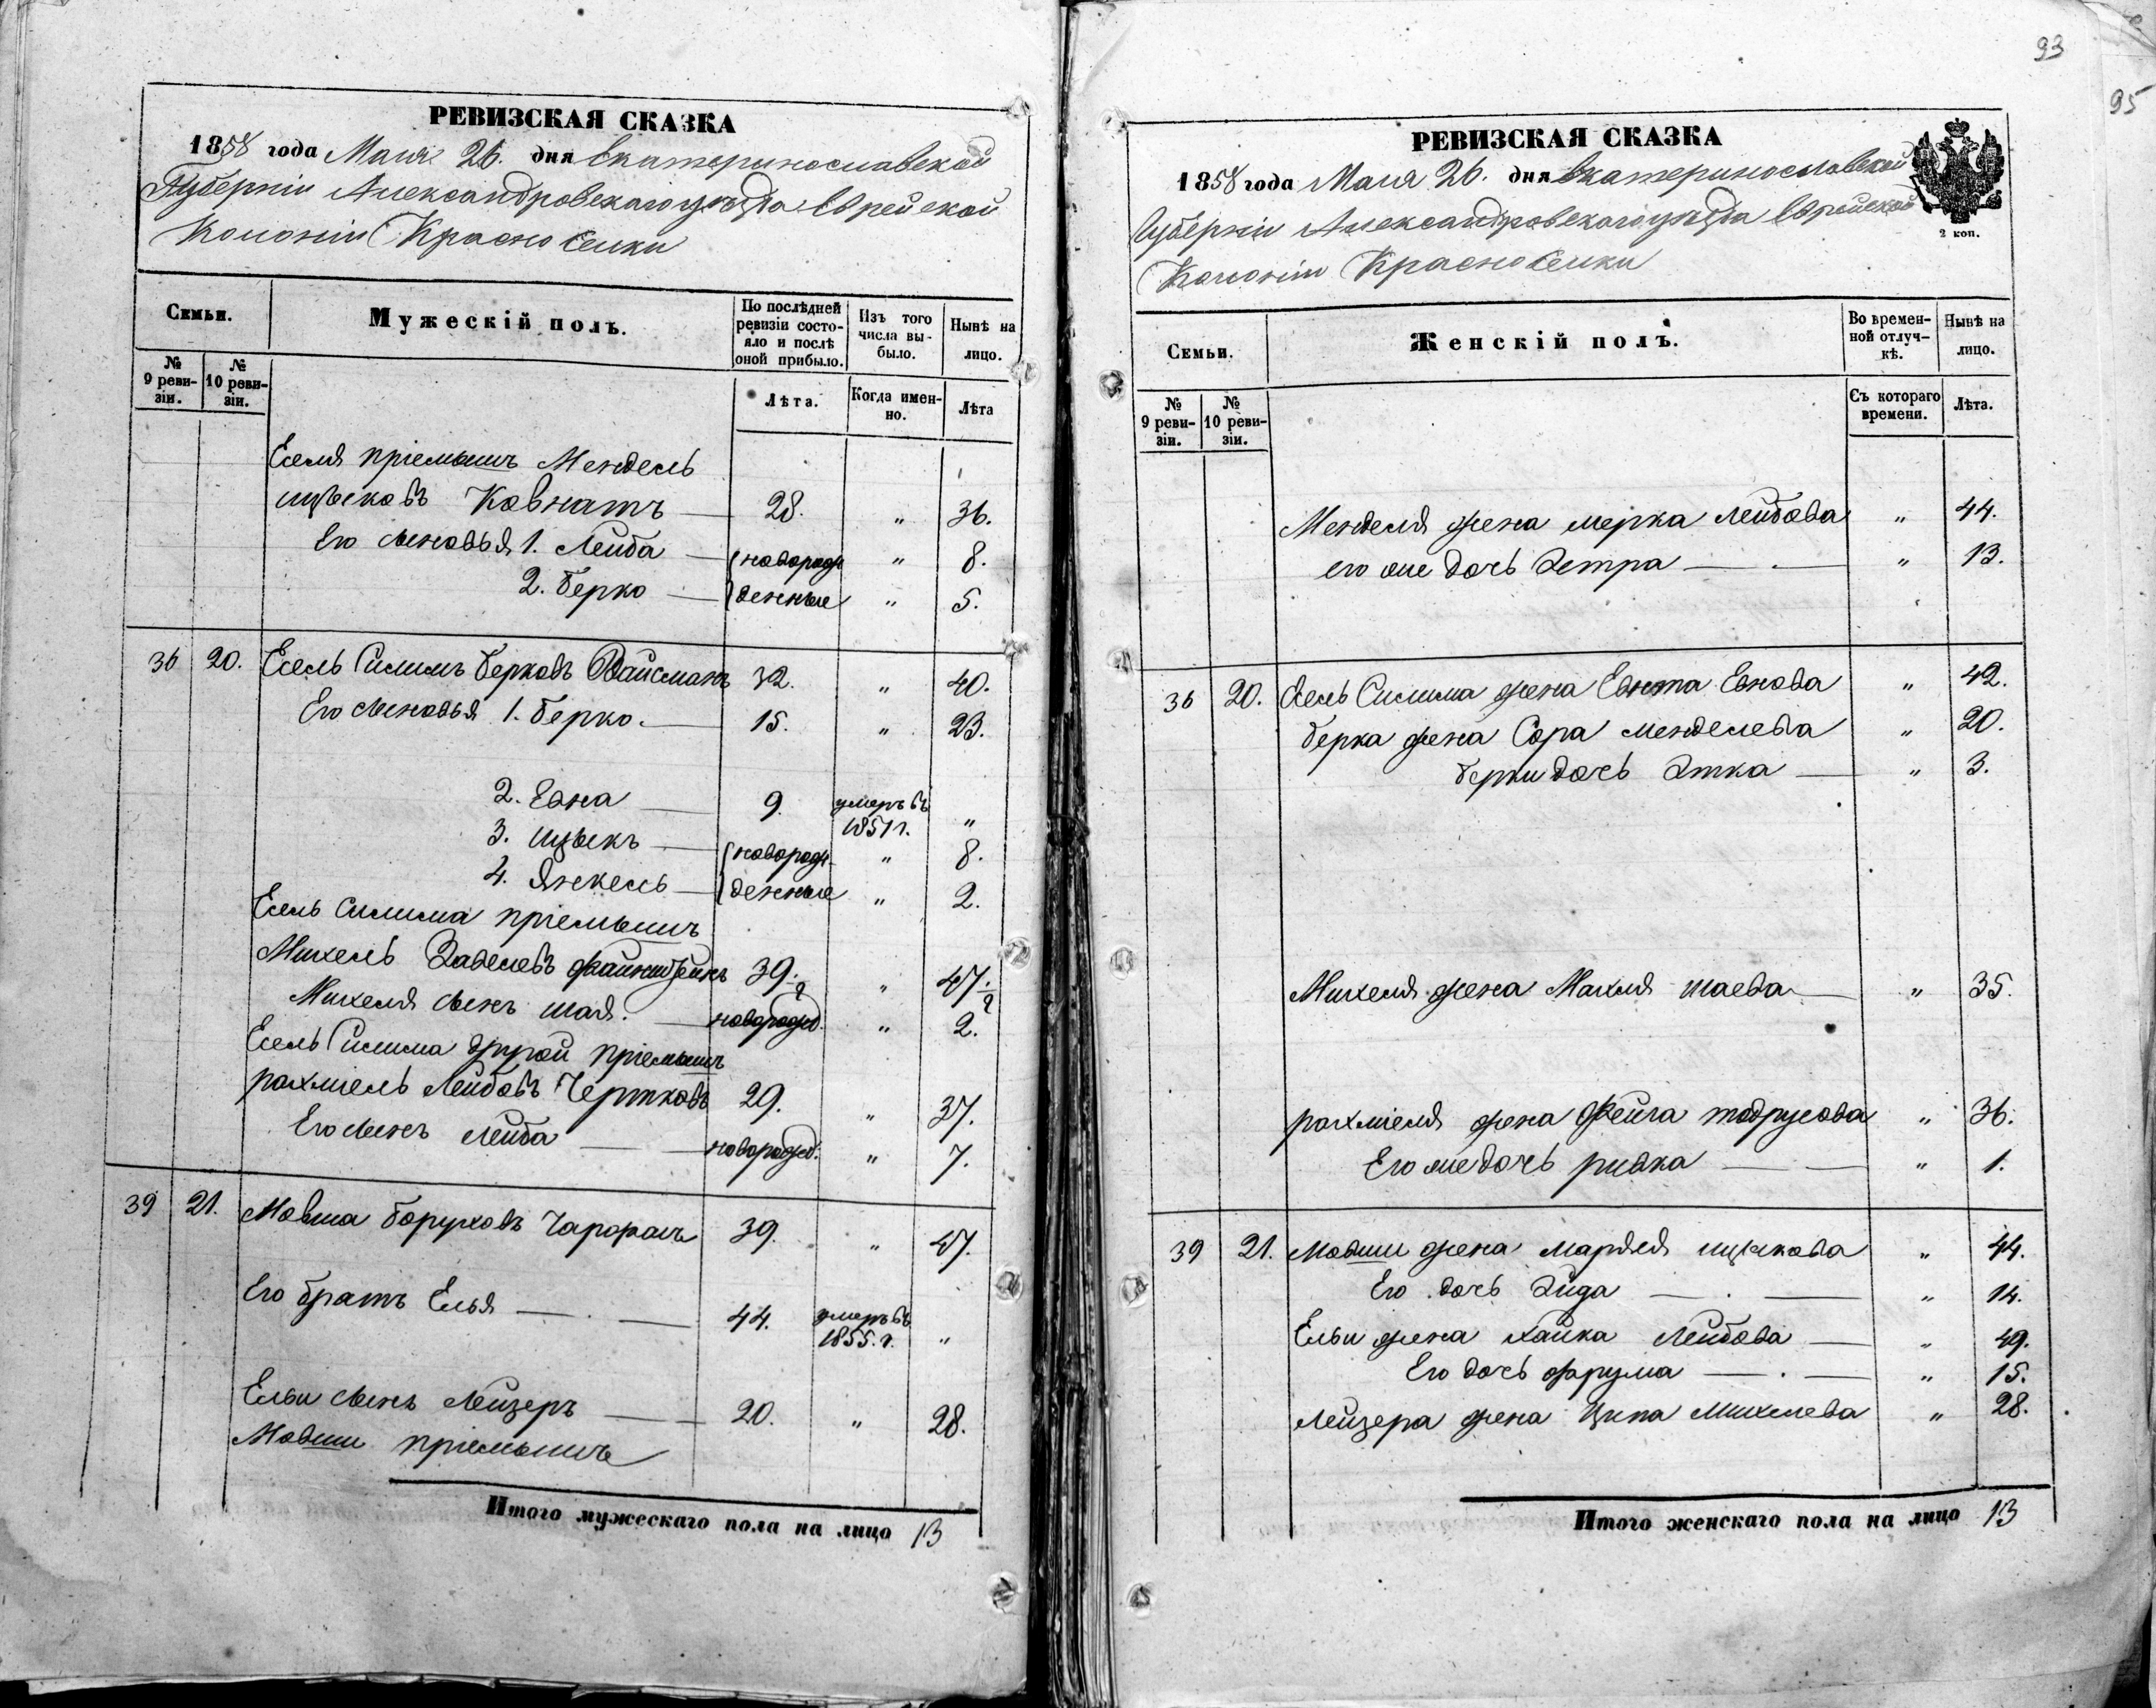 93
95
РЕВИЗСКАЯ СКАЗКА
1858 года Мая 26. дня Екатеринославской
Губерніи Александровскаго уѣзда Еврейской
Колоніи Красноселки
Семьи.
Мужескій полъ.
По послѣдней ревизіи состояло и послѣ оной прибыло.
Изъ того числа выбыло.
Нынѣ на лицо.
№ 9 ревизіи.
№ 10 ревизіи.
Лѣта.
Когда именно.
Лѣта
Еселя пріемышъ Мендель
Ицьковъ Ковнатъ 28. " 36.
Его сыновья 1. Лейба новорож " 8.
2. Берко денные " 5.
36 20. Есель Силимъ Берковъ Вайсманъ 32. " 40.
Его сыновья 1. Берко. 15. " 23.
2. Евна 9. умеръ въ 1851 г. "
3. Ицыкъ новорож " 8.
4. Янкель денные " 2.
Есель Силима пріемышъ
Михель Заделевъ 39. 1/2 " 47. 1/2
Михеля сынъ Шая. новорожд. " 2.
Есель Силима другой пріемышъ
Рахміель Лейбовъ Чертковъ 29. " 37.
Его сынъ Лейба новорожд. " 7.
39 21. Мовша Боруховъ 39. " 47.
Его братъ Елья 44. умеръ въ 1855. г. "
Ельи сынъ Лейзеръ 20. " 28.
Мовши пріемышъ
Итого мужескаго пола на лицо 13
РЕВИЗСКАЯ СКАЗКА
1858 года Мая 26. дня Екатеринославской
Губерніи Александровскаго уѣзда Еврейской
Колоніи Красноселки
2 коп.
Семьи.
Женскій полъ.
Во временной отлучкѣ.
Нынѣ на лицо.
№ 9 ревизіи.
№ 10 ревизіи.
Съ котораго времени.
Лѣта.
Менделя жена Мерка Лейбова " 44.
его же дочь Этра " 13.
36 20. Есель Силима жена Евнова " 42.
Берка жена Сора Менделева " 20.
Берки дочь Этка " 3.
Михеля жена Махля Шаева " 35.
Рахміеля жена Фейга Тодрусова " 36.
Его же дочь Ривка " 1.
39 21. Мовши жена Маряся Ицькова " 44.
Его дочь " 14.
Ельи жена Хайка Лейбова " 49.
Его дочь Фрума " 15.
Лейзера жена Ципа Михелева " 28.
Итого женскаго пола на лицо 13